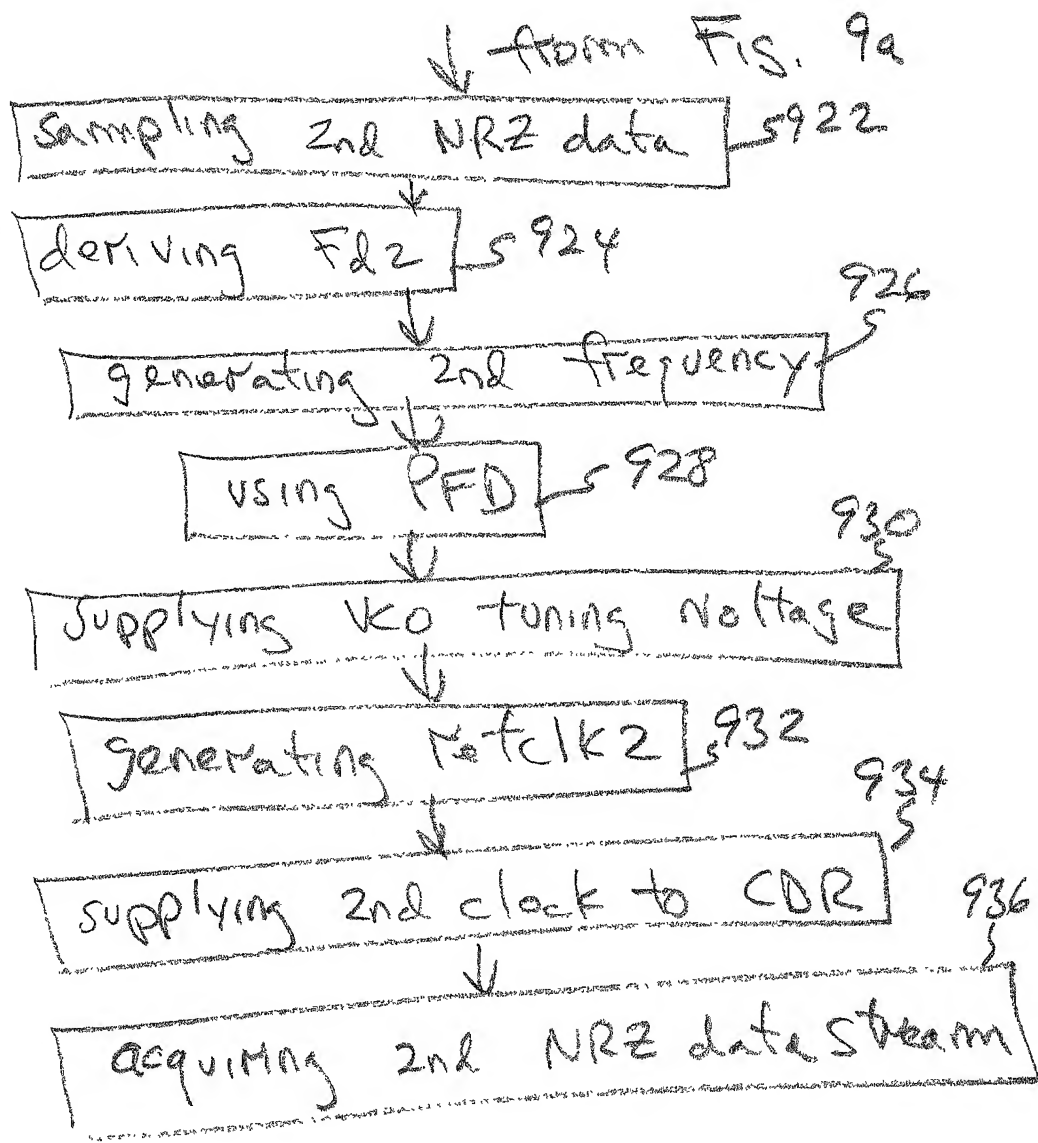 from Fig. 9a
sampling 2nd NRZ data 922
deriving Fd2 924
926
generating 2nd frequency
using PFD 928
930
supplying VCO tuning voltage
generating refclk2 932
934
supplying 2nd clock to CDR
936
acquiring 2nd NRZ data stream